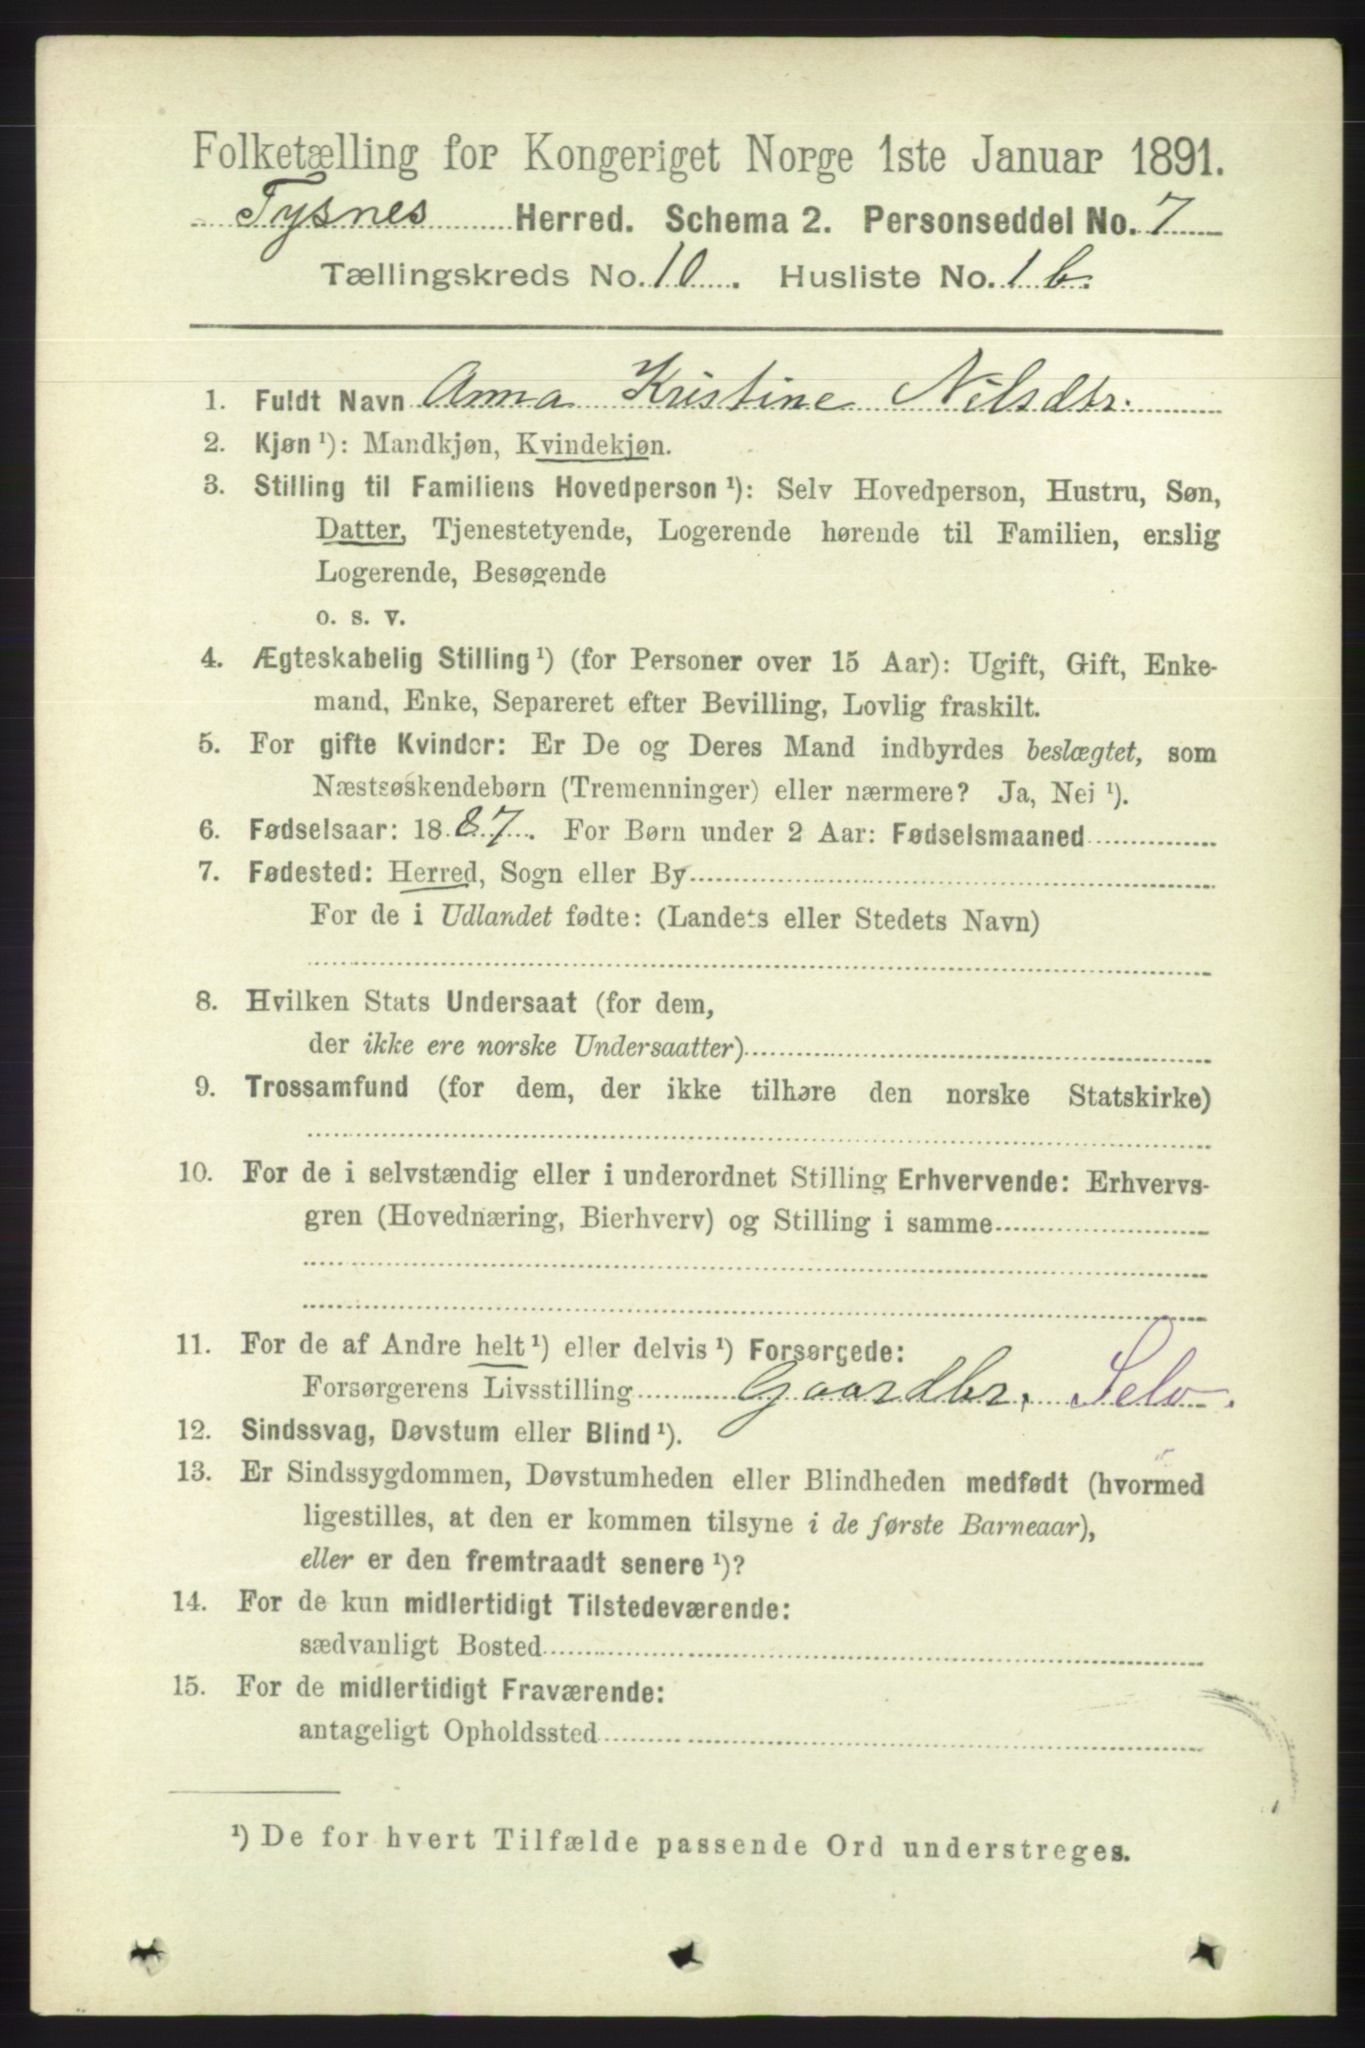 Folketælling for Kongeriget Norge 1ste Januar 1891.
Tysnes Herred. Schema 2. Personseddel No. 7
Tællingskreds No. 10. Husliste No. 1 b.
1. Fuldt Navn Anna Kristine Nilsdtr.
2. Kjøn ¹): Mandkjøn, Kvindekjøn.
3. Stilling til Familiens Hovedperson ¹): Selv Hovedperson, Hustru, Søn,
Datter, Tjenestetyende, Logerende hørende til Familien, enslig
Logerende, Besøgende
o. s. v.
4. Ægteskabelig Stilling ¹) (for Personer over 15 Aar): Ugift, Gift, Enke-
mand, Enke, Separeret efter Bevilling, Lovlig fraskilt.
5. For gifte Kvinder: Er De og Deres Mand indbyrdes beslægtet, som
Næstsøskendebørn (Tremenninger) eller nærmere? Ja, Nei ¹).
6. Fødselsaar: 1887. For Børn under 2 Aar: Fødselsmaaned
7. Fødested: Herred, Sogn eller By
For de i Udlandet fødte: (Landets eller Stedets Navn)
8. Hvilken Stats Undersaat (for dem,
der ikke ere norske Undersaatter)
9. Trossamfund (for dem, der ikke tilhøre den norske Statskirke)
10. For de i selvstændig eller i underordnet Stilling Erhvervende: Erhvervs-
gren (Hovednæring, Bierhverv) og Stilling i samme
11. For de af Andre helt ¹) eller delvis ¹) Forsørgede:
Forsørgerens Livsstilling Gaardbr. Selv.
12. Sindssvag, Døvstum eller Blind ¹).
13. Er Sindssygdommen, Døvstumheden eller Blindheden medfødt (hvormed
ligestilles, at den er kommen tilsyne i de første Barneaar),
eller er den fremtraadt senere ¹)?
14. For de kun midlertidigt Tilstedeværende:
sædvanligt Bosted
15. For de midlertidigt Fraværende:
antageligt Opholdssted
¹) De for hvert Tilfælde passende Ord understreges.